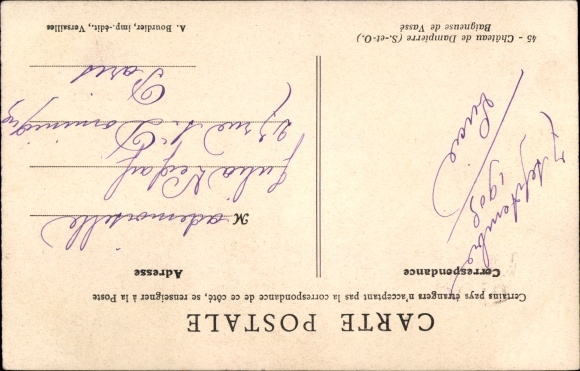 CARTE POSTALE
Certains pays étrangers n'acceptant pas la correspondance de ce côté, se renseigner à la Poste
Correspondance
7 Septembre
1905
Adresse
Mademoiselle
Julia
23 rue St Dominique
Paris
45 - Château de Dampierre (S.-et-O.)
Baigneuse de Vassé
A. Bourdier, imp.-édit., Versailles